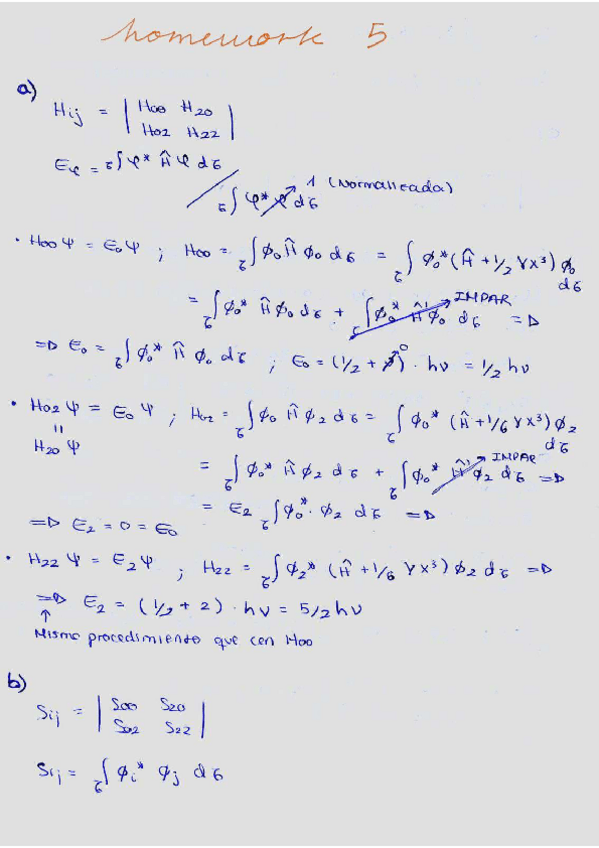 homework 5
a)
Hij = | H00 H20 |
| H02 H22 |
Eφ = ∫τ φ* Ĥ φ dτ
∫τ φ* φ dτ 1 (Normalizada)
• H00 Ψ = E0 Ψ ; H00 = ∫τ ϕ0 Ĥ ϕ0 dτ = ∫τ ϕ0* (Ĥ + 1/2 γx³) ϕ0 dτ
= ∫τ ϕ0* Ĥ ϕ0 dτ + ∫τ ϕ0* Ĥ' ϕ0 dτ IMPAR =>
=> E0 = ∫τ ϕ0* Ĥ ϕ0 dτ ; E0 = (1/2 + 0) · hν = 1/2 hν
• H02 Ψ = E0 Ψ ; H02 = ∫τ ϕ0 Ĥ ϕ2 dτ = ∫τ ϕ0* (Ĥ + 1/6 γx³) ϕ2 dτ
"
H20 Ψ
= ∫τ ϕ0* Ĥ ϕ2 dτ + ∫τ ϕ0* Ĥ' ϕ2 dτ IMPAR =>
= E2 ∫τ ϕ0* · ϕ2 dτ =>
=> E2 = 0 = E0
• H22 Ψ = E2 Ψ ; H22 = ∫τ ϕ2* (Ĥ + 1/6 γx³) ϕ2 dτ =>
=> E2 = (1/2 + 2) · hν = 5/2 hν
↑
Mismo procedimiento que con H00
b)
Sij = | S00 S20 |
| S02 S22 |
Sij = ∫τ ϕi* ϕj dτ